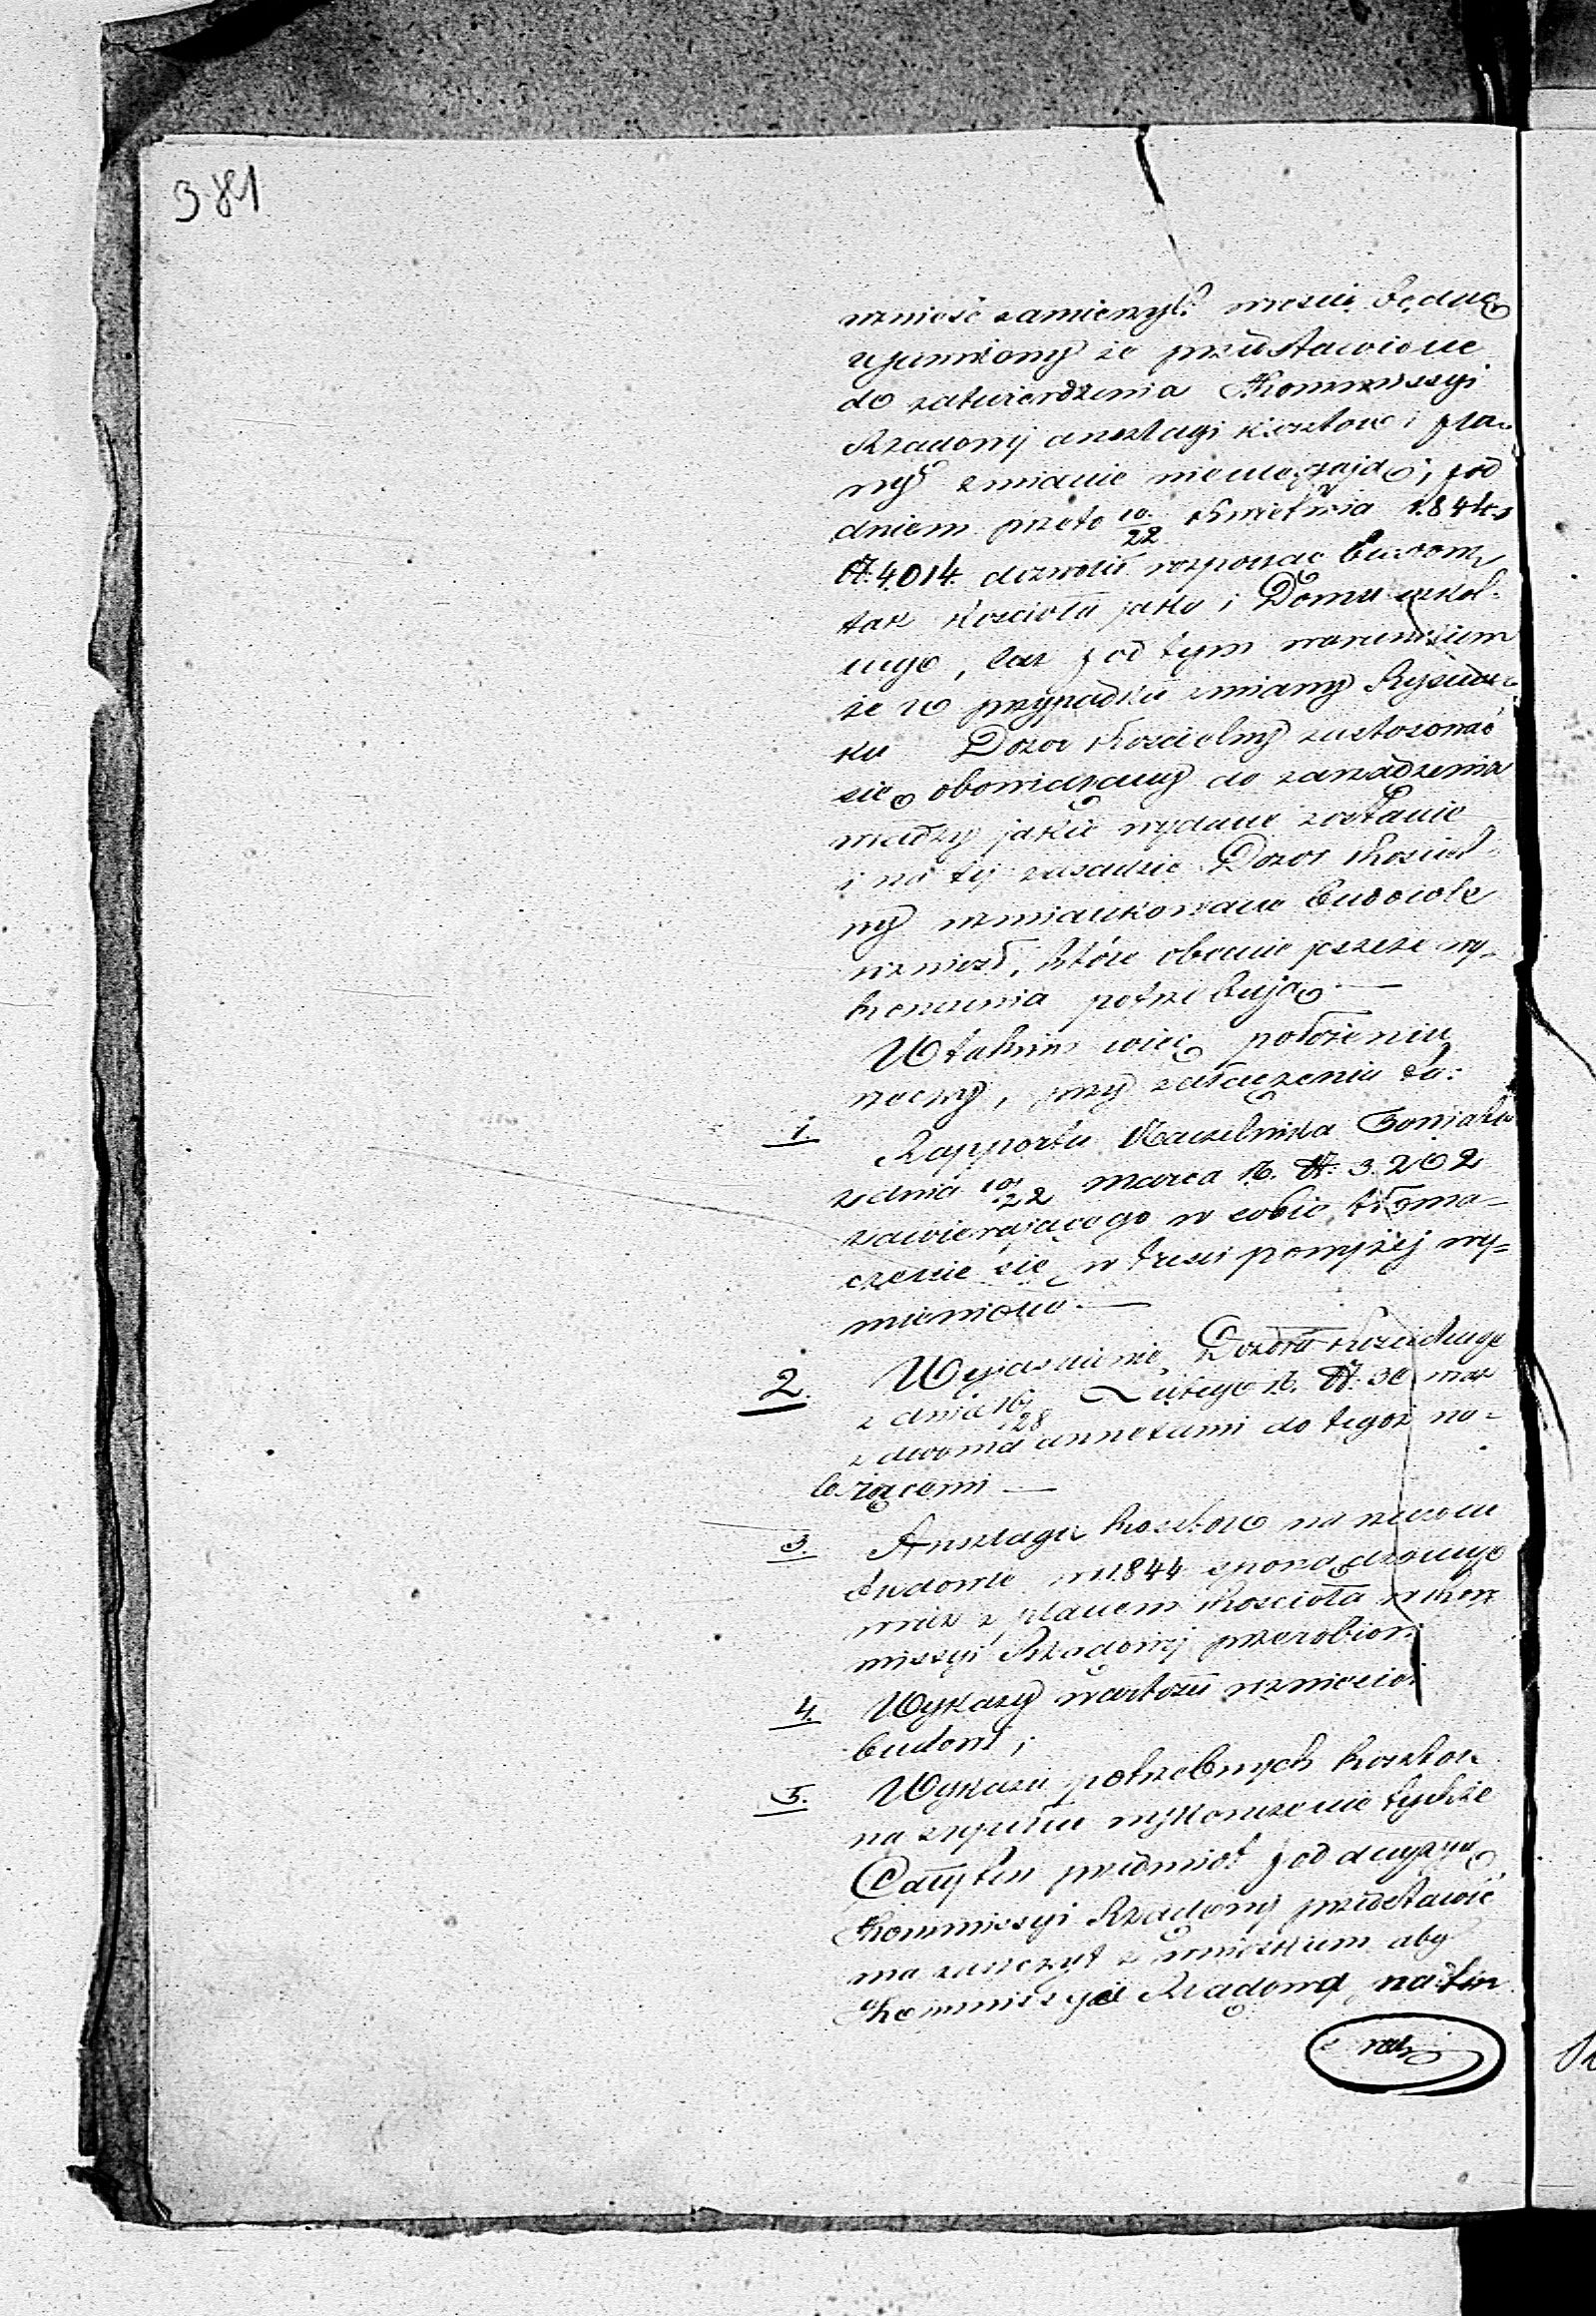 381
wznieść zamierzył: wresci będąc
ujawniony że przedstawione
do zatwierdzenia Kommissyi
Rządowej anszlagi kosztów i pla-
ny zmianie nieulegają; pod
dniem przeto 10/22 Kwietnia 1844 r
N. 4014. dozwolił rozpocząć budowę
tak Kościoła jako i Domu szkol-
nego, lecz pod tym warunkiem
że w przypadku zmiany Rysun-
ku Dozór Kościelny zastosować
się obowiązany do zarządzenia
władzy jakie wydane zostanie
i na tej zasadzie Dozór Kościel-
ny wzmiankowane budowle
wzniósł, które obecnie jeszcze wy-
kończenia potrzebują —
W takim więc położeniu
rzeczy, przy załączeniu tu:
1. Rapportu Naczelnika Powiatu
z dnia 10/22 marca 16. N. 3.262
zawierającego w sobie tłoma-
czenie się w treści powyżej wy=
mienione. —
2. Wyjaśnienie Dozoru Kościelnego
z dnia 16/28 Lutego 16. N. 30 wraz
z dwoma annexami do tegoż na-
leżącemi —
3. Anszlagu kosztów na rzeczone
budowle w 1844 sporządzonego
wraz z planem Kościoła w Kom
missyi Rządowej przerobion:
4. Wykazy wartości wzniesion:
budowl;
5. Wykazu potrzebnych kosztów
na zupełne wykończenie tychże
Cały ten przedmiot pod decyzyą
Kommissyi Rządowej przedstawić
ma zaszczyt z wnioskiem aby
Kommissya Rządowa, na ten